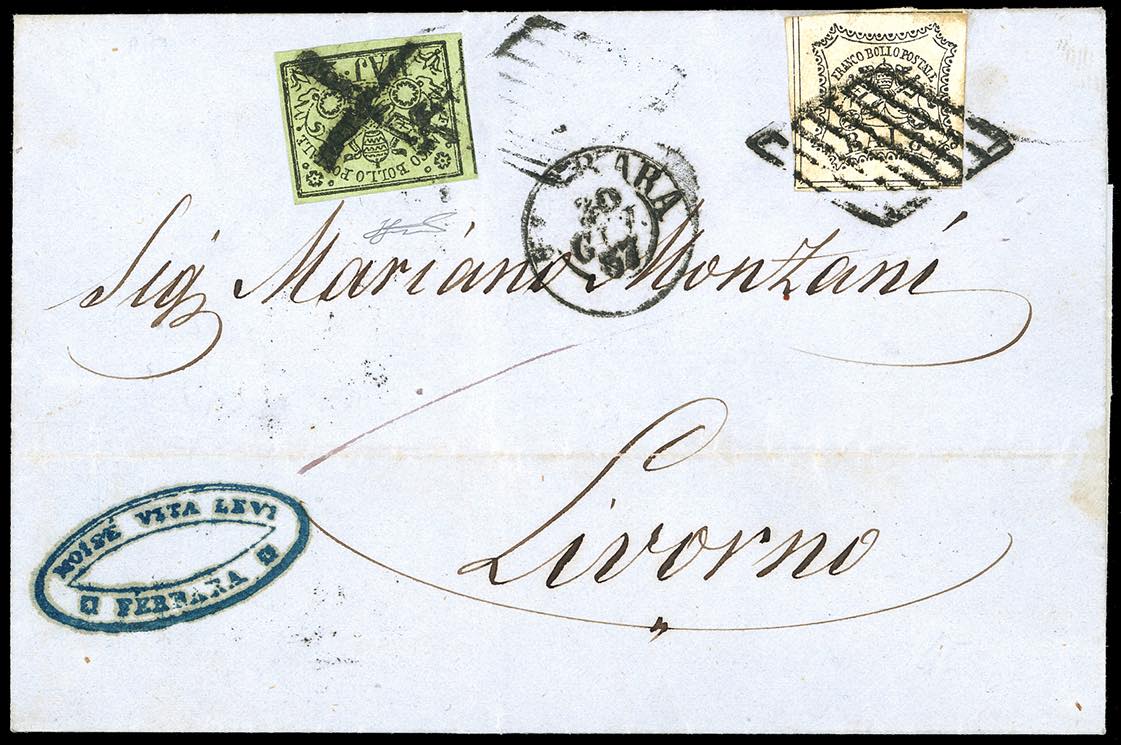 BAJ
BOLLO PO
FRANCO BOLLO POSTALE
BAJ 8
FERRARA
30
GIU
57
Sig Mariano Monzani
Livorno
MOISÉ VITA LEVI
FERRARA